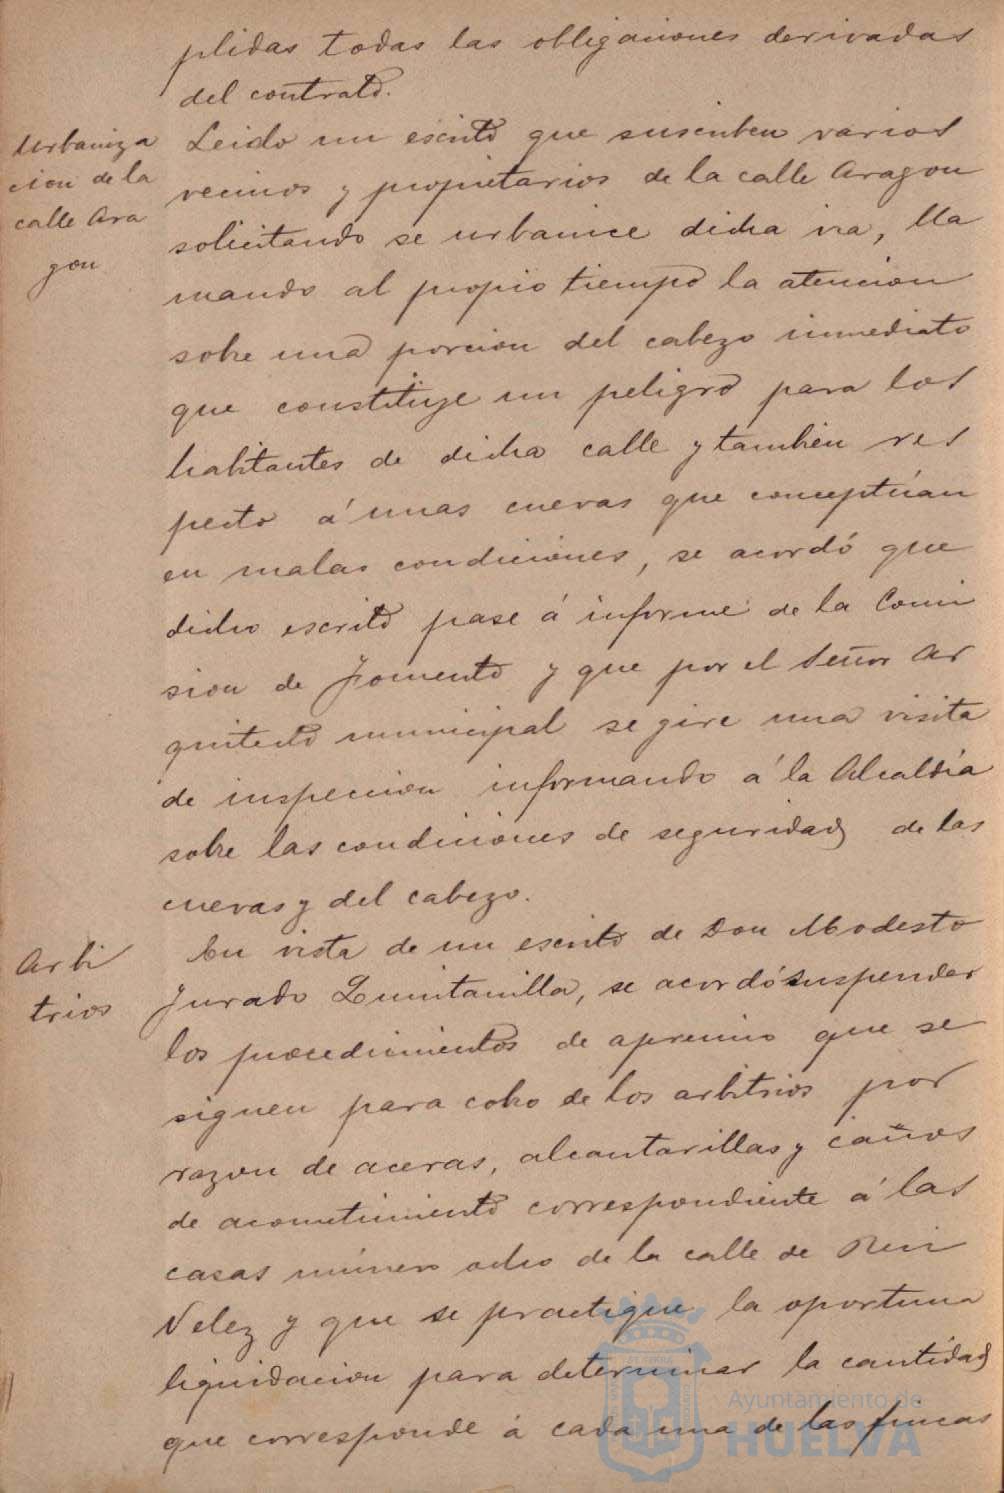 plidas todas las obligaciones derivadas
del contrato.
Urbaniza
cion de la
calle Ara
gon
Leido un escrito que suscriben varios
vecinos y propietarios de la calle Aragon
solicitando se urbanice dicha via, lla
mando al propio tiempo la atencion
sobre una porcion del cabezo inmediato
que constituye un peligro para los
habitantes de dicha calle y tambien res
pecto á unas cuevas que conceptúan
en malas condiciones, se acordó que
dicho escrito pase á informe de la Comi
sion de Fomento y que por el Señor Ar
quitecto municipal se gire una visita
de inspeccion informando á la Alcaldía
sobre las condiciones de seguridad de las
cuevas y del cabezo.
Arbi
trios
En vista de un escrito de Don Modesto
Jurado Quintanilla, se acordó suspender
los procedimientos de apremio que se
siguen para cobro de los arbitrios por
razon de aceras, alcantarillas y caños
de acometimiento correspondiente á las
casas número ocho de la calle de
Velez y que se practique la oportuna
liquidacion para determinar la cantidad
que corresponde á cada una de las fincas
Ayuntamiento de
HUELVA